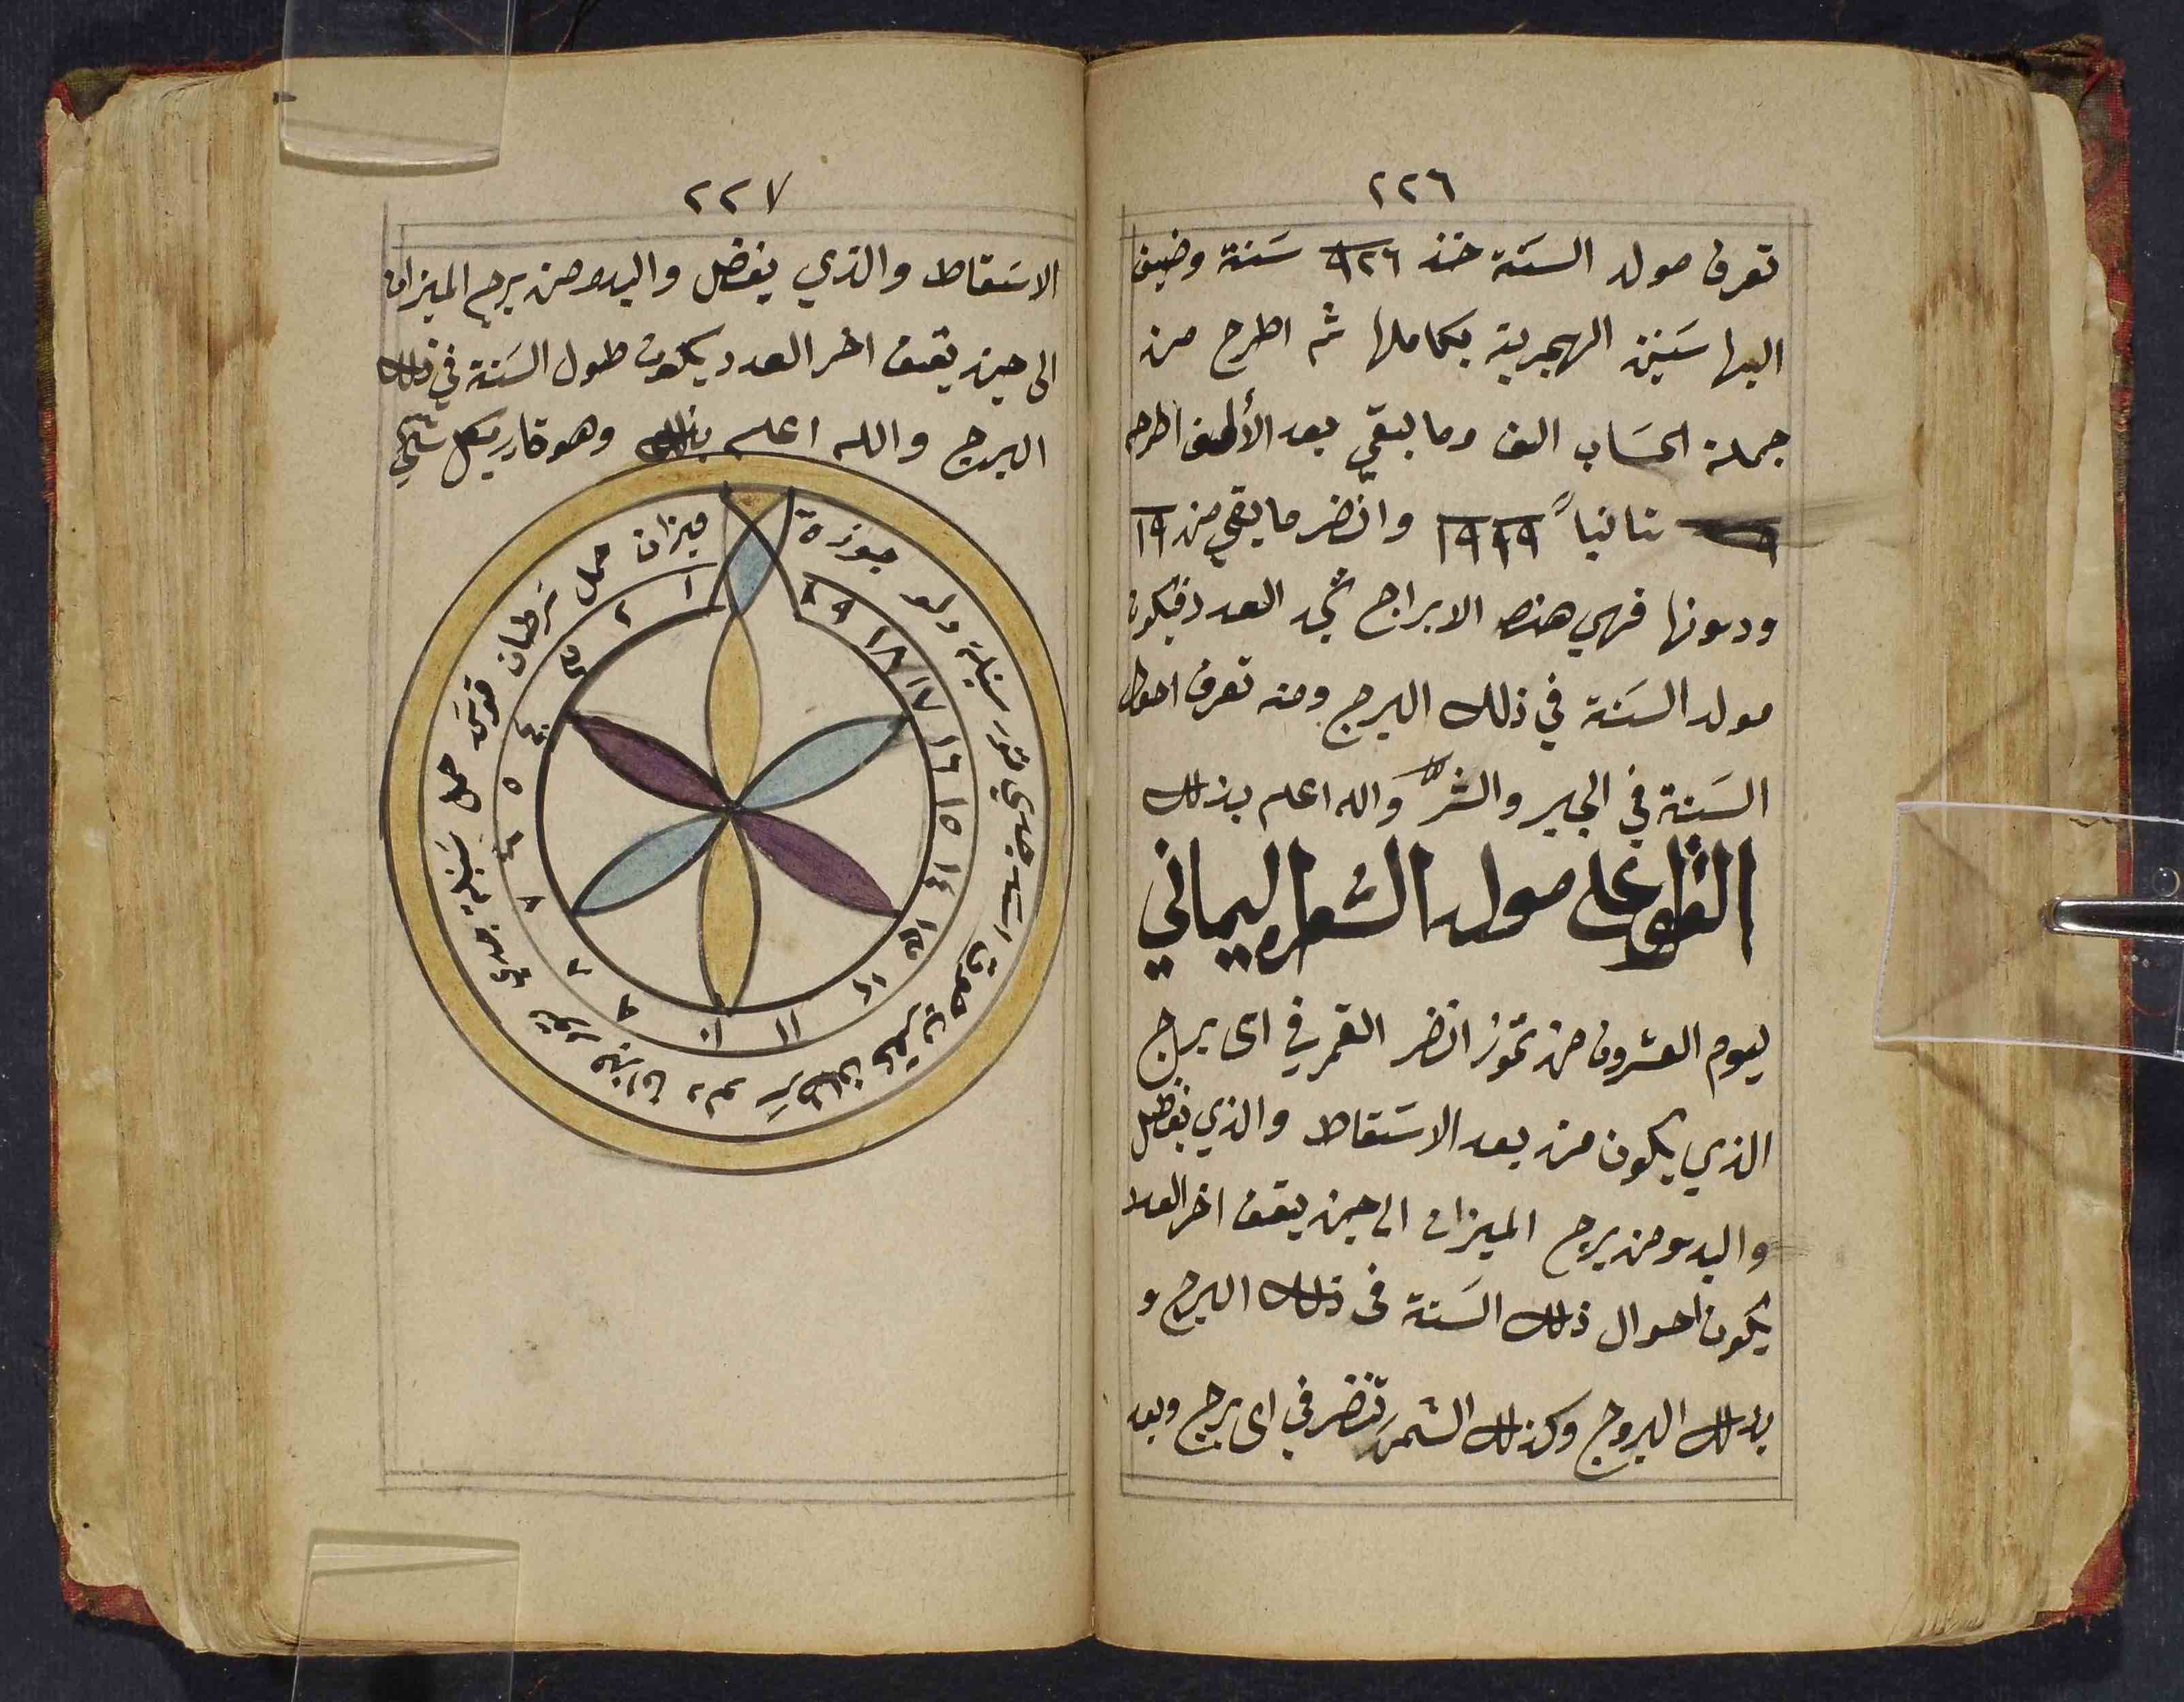 ٢٢٦
تعرف مولد السَنة خذ ٩٢٦ سَنة وضيف
اليها سَنين الهجرية بكاملها ثم اطرح من
جملة الحسَاب الف وما يبقي بعد الألف اطرحه
ثانياً ١٩ ١٩ وانضر ما يبقي من ١٩
ودونها فهي هذه الابراج تجد العدد فيكون
مولد السَنة في ذلك البرج ومنه تعرف احوال
السَنة في الخير والشرّ والله اعلم بذلك
القول على مولد الشعرا اليماني
ليوم العشرون من تموز انضر القمر في اى برج
الذي يكون من بعد الاسَتقاط والذي يفضل
والبدو من برج الميزان الى حين يقف اخر العدد
يكون احوال ذلك السَنة فى ذلك البرج و
بذلك البروج وكذلك الشمس تنضر في اى برج وبعد
٢٢٧
الاسَتقاط والذي يفضل والبدو من برج الميزان
الى حين يقف اخر العدد يكون طول السَنة في ذلك
البرج والله اعلم بذلك وهو قادر بكل شئ
ميزان حمل سَرطان قوسَ حمل سَنبله جدي ثور ميزان دلو سَرطان عقرب حوت اسَد جدي ثور سنبلة دلو جوزة
١ ٢ ٣ ٤ ٥ ٦ ٧ ٨ ٩ ١٠ ١١ ١٢ ١٣ ١٤ ١٥ ١٦ ١٧ ١٨ ١٩